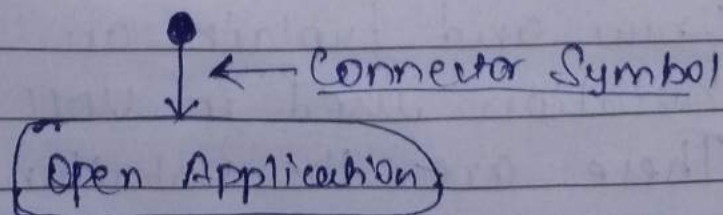 Connector Symbol
Open Application